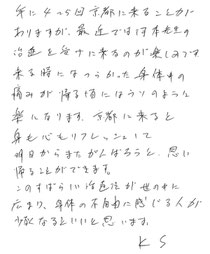 年に4〜5回京都に来ることが
ありますが、最近では 本先生の
治療を受けに来るのが楽しみです
来る時につらかった身体中の
痛みが帰る頃にはうそのように
楽になります。京都に来ると
身も心もリフレッシュして
明日からまたがんばろうと、思い
帰ることができます。
このすばらしい治療法が世の中に
広まり、身体の不自由に感じる人が
少なくなるといいと思います。
K S